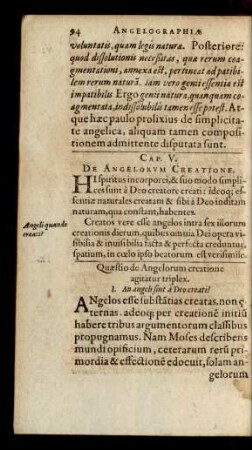 94 ANGELOGRAPHIÆ
voluntatis, quam legis natura. Posteriore:
quod dissolutionis necessitas, quæ rerum coa-
gmentationi, annexa est, pertineat ad patibi-
lem rerum naturā. iam vero genii essentia est
impatibilis Ergo genii natura, quanquam coa-
gmentata, indissolubilis tamen esse potest. At-
que hæc paulo prolixius de simplicita-
te angelica, aliquam tamen compositi-
onem admittente disputata sunt.
CAP. V.
DE ANGELORVM CREATIONE.
Hi spiritus incorporei, & suo modo simpli-
ces sunt à Deo creatore creati: ideoq; es-
sentiæ naturales creatam & sibi à Deo inditam
naturam, qua constant, habentes.
Angeli quando
creati?
Creatos vere esse angelos intra sex illorum
creationis dierum, quibus omnia Dei opera vi-
sibilia & inuisibilia facta & perfecta creduntur,
spatium, in cœlo ipso beatorum est verisimile.
Quæstio de Angelorum creatione
agitatur triplex.
1. An angeli sint à Deo creati?
ANgelos esse substātias creatas, non ę-
ternas. adeoq; per creationē initiū
habere tribus argumentorum classibus
propugnamus. Nam Moses describens
mundi opificium, ceterarum rerū pri-
mordia & effectionē edocuit, solam an-
gelorum